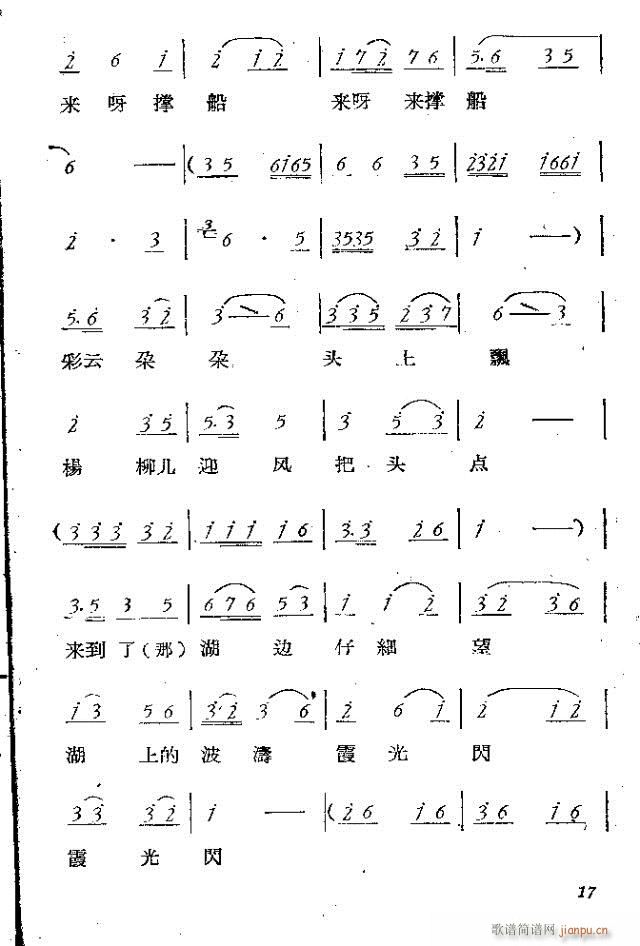 2̇ 6 1̇ | 2̇ 1̇ 2̇ | 1̇ 7 2̇ 7 6 | 5. 6 3 5 |
来 呀 撑 船 来呀 来撑 船
6 — | (3 5 6i65 | 6 6 3 5 | 2321 1661 |
2 · 3 | 3 6 · 5 | 3535 3 2 | i —) |
5. 6 3 2 | 3 6 | 3 3 5 2 3 7 | 6 3 |
彩云 朵 朵 头 上 飄
2 3 5 | 5. 3 5 | 3 5 3 | 2 — |
楊 柳儿 迎 风 把 头 点
(3 3 3 3 2 | i i i i 6 | 3. 3 2 6 | i —) |
3. 5 3 5 | 6 7 6 5 3 | i i 2 | 3 2 3 6 |
来到 了(那) 湖 边 仔 細 望
i 3 5 6 | 3 2 3 6 | 2 6 i | 2 i 2 |
湖 上的 波 濤 霞 光 閃
3 3 3 2 | i — | (2 6 i 6 | 3 6 i 6 |
霞 光 閃
17
歌谱简谱网 jianpu.cn